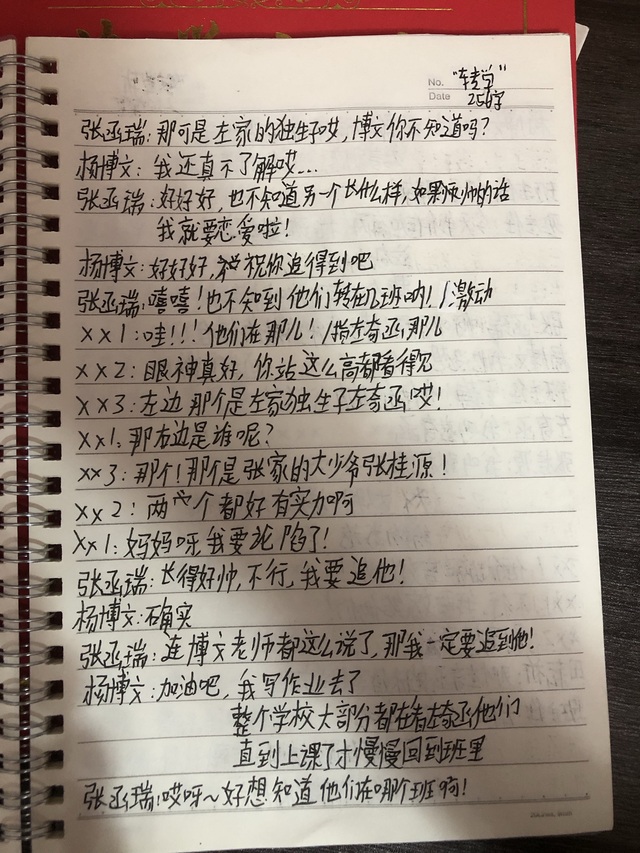 No. "转学"
Date 256字
张函瑞:那可是左家的独生子哎,博文你不知道吗?
杨博文:我还真不了解哎...
张函瑞:好好好,也不知道另一个长什么样,如果须帅的话
我就要恋爱啦!
杨博文:好好好,祝你追得到吧
张函瑞:嘻嘻!也不知到他们转在几班哟!/激动
xx1:哇!!!他们在那儿!/指左奇函那儿
xx2:眼神真好,你站这么高都看得见
xx3:左边那个是左家独生子左奇函哎!
xx1:那右边是谁呢?
xx3:那个!那个是张家的大少爷张桂源!
xx2:两个都好有实力啊
xx1:妈妈呀我要沦陷了!
张函瑞:长得好帅,不行,我要追他!
杨博文:确实
张函瑞:连博文老师都这么说了,那我一定要追到他!
杨博文:加油吧,我写作业去了
整个学校大部分都在看左奇函他们
直到上课了才慢慢回到班里
张函瑞:哎呀~好想知道他们在哪个班啊!